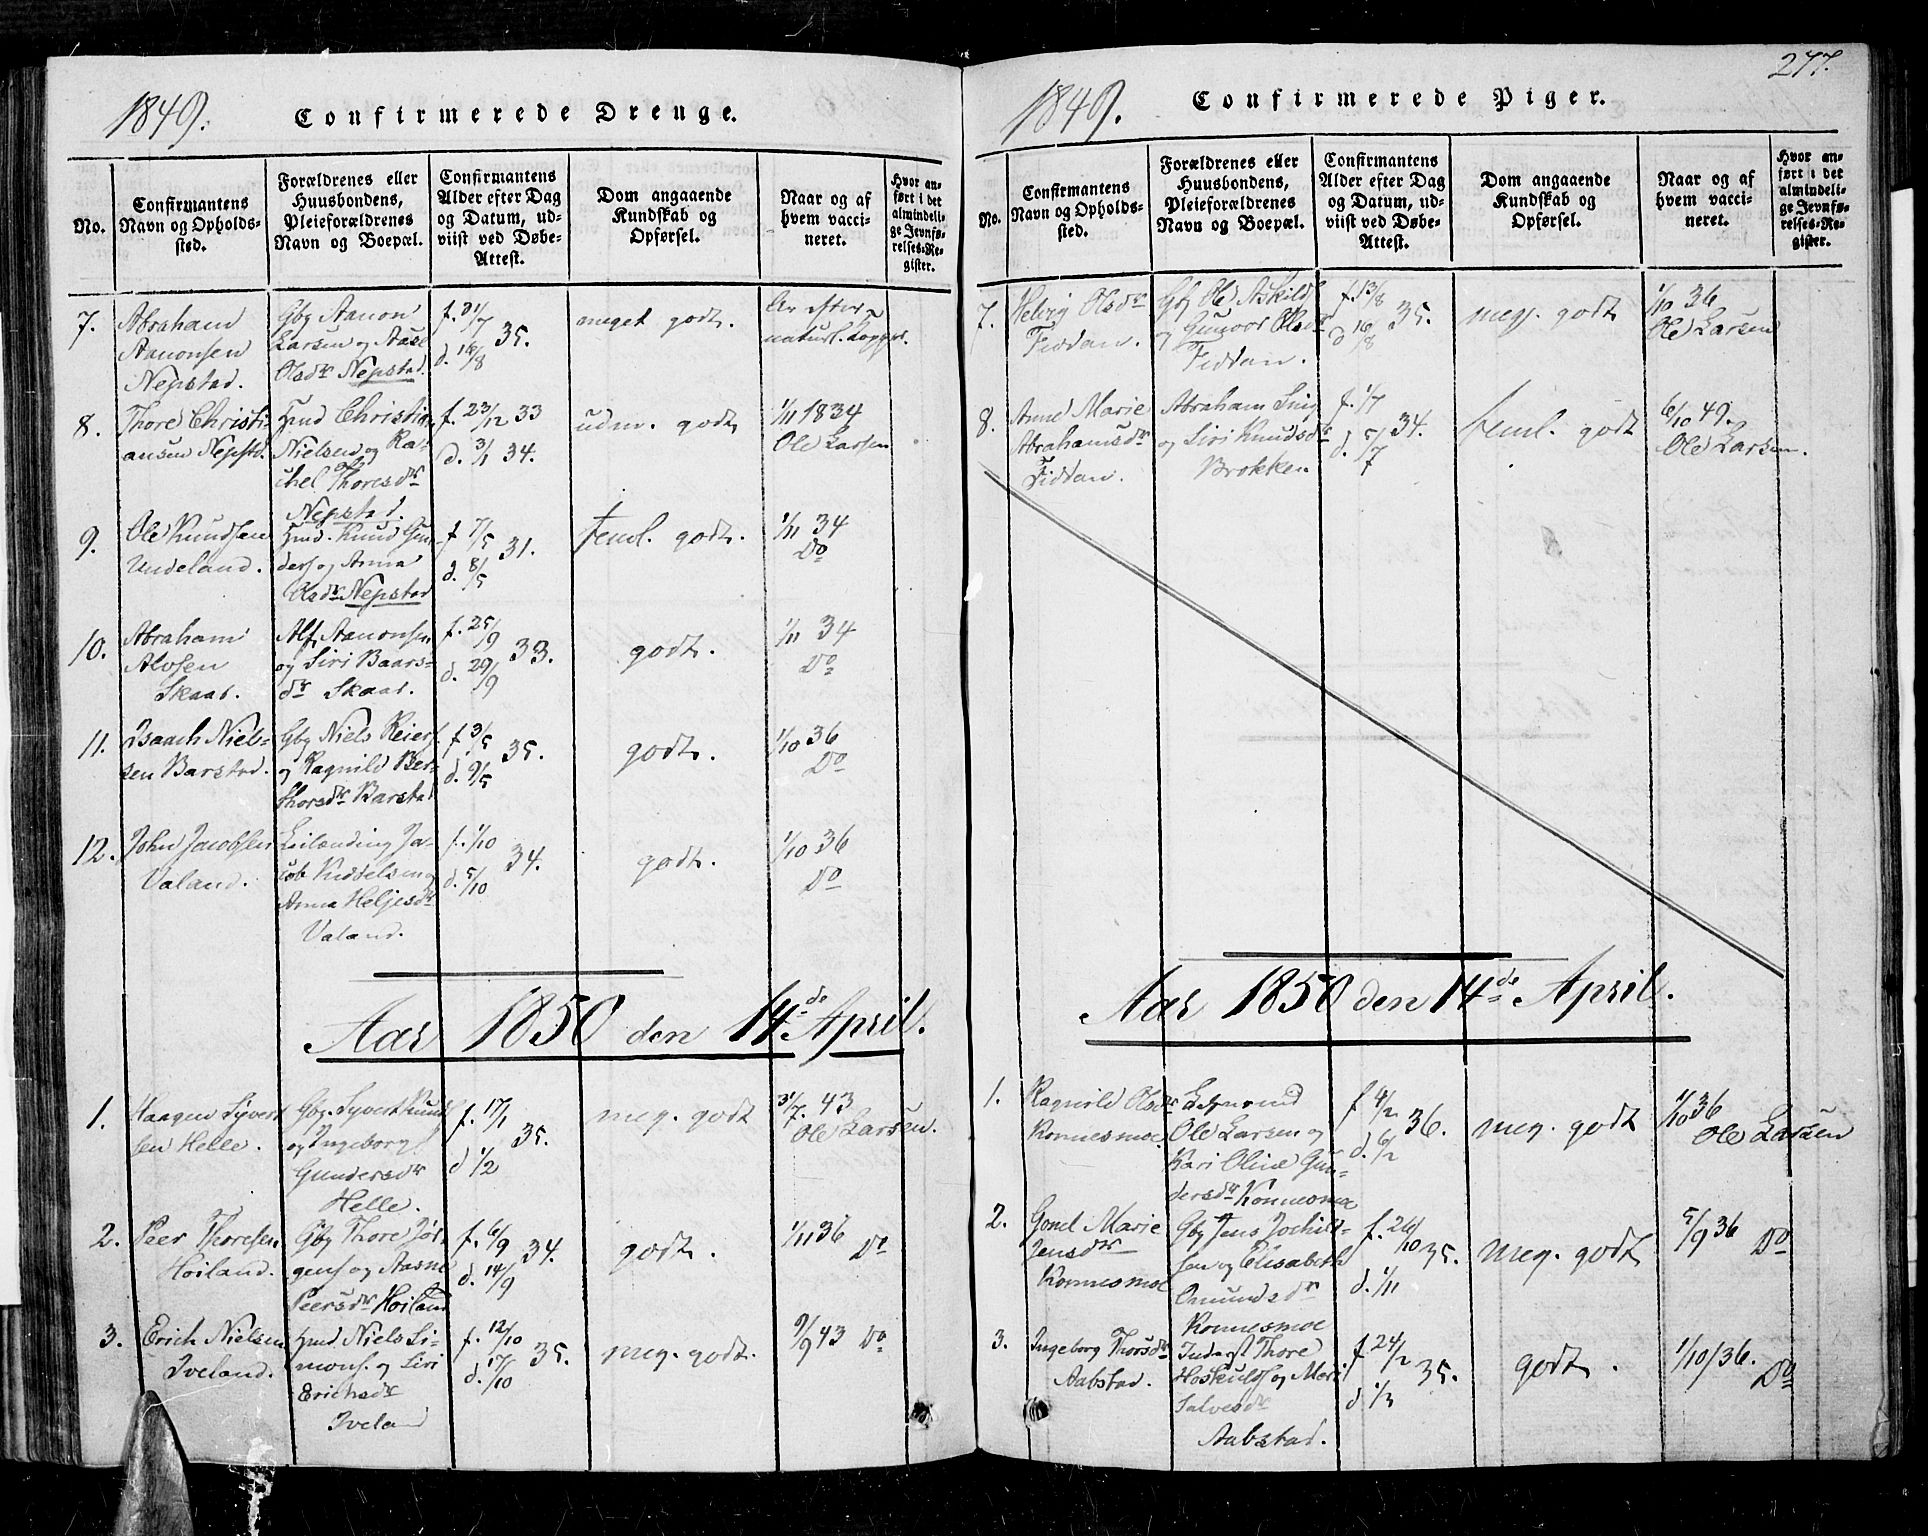 1849.
Confirmerede Drenge.
No.
Confirmantens
Navn og Opholds-
sted.
Forældrenes eller
Huusbondens,
Pleieforældrenes
Navn og Boepæl.
Confirmantens
Alder efter Dag
og Datum, ud-
viist ved Døbe-
Attest.
Dom angaaende
Kundskab og
Opførsel.
Naar og af
hvem vacci-
neret.
Hvor an-
ført i det
almindeli-
ge Jevnfø-
relses-Re-
gister.
7.
Abraham
Aanonsen
Nepstad.
Gbr Aanon
Larsen og Aase
Olsdr Nepstad.
f. 31/7 35.
d. 16/8
meget godt.
naturl. Kopper.
8.
Thore Christi-
ansen Nepstd.
Hmd Christian
Nielsen og Ra-
chel Thoresdr
Nepstad.
f. 23/12 33
d. 3/1 34.
udm. godt
1/11 1834
Ole Larsen
9.
Ole Knudsen
Undeland.
Hmd. Knud Gun-
ders og Anna
Olsdr Nepstad
f 7/5 31.
d. 8/5
teml. godt.
1/11 34
Do
10.
Abraham
Alvsen
Skaar.
Alf Aanonsen
og Siri Baars-
dr Skaar.
f. 25/9 33.
d. 29/9
godt.
1/11 34
Do
11.
Isaach Niel-
sen Barstad.
Gbr Niels Reiers
og Ragnild Ber-
thorsdr Barstad
f. 3/5 35.
d. 9/5
godt.
1/10 36
Do
12.
John Jacobsen
Valand.
Leilænding Ja-
cob Kiddelsen og
Anna Heljesdr
Valand.
f. 1/10 34.
d. 5/10
godt.
1/10 36
Do
Aar 1850 den 14de April.
1.
Haagen Syvert
sen Helle.
Gbr. Syvert Knuds
og Ingeborg
Gundersdr
Helle.
f. 17/1 35.
d 1/2
meg. godt
31/7. 43
Ole Larsen.
2.
Peer Thorresen
Hoiland.
Gbr Thore Jør-
gens og Aasne
Peersdr Hoiland
f. 6/9 34.
d. 14/9
godt.
1/11 36 Do
3.
Erich Nielsen
Iveland.
Hmd Niels Si-
mons. og Siri
Erichsdr
Iveland
f. 12/10 35.
d. 17/10
meg. godt.
9/9 43 Do
277.
1849.
Confirmerede Piger.
No.
Confirmantens
Navn og Opholds-
sted.
Forældrenes eller
Huusbondens,
Pleieforældrenes
Navn og Boepæl.
Confirmantens
Alder efter Dag
og Datum, ud-
viist ved Døbe-
Attest.
Dom angaaende
Kundskab og
Opførsel.
Naar og af
hvem vacci-
neret.
Hvor an-
ført i det
almindeli-
ge Jevnfø-
relses-Re-
gister.
7.
Helvig Olsdr
Fiddan.
Gbr Ole Askilds
og Gunvor Olsdr
Fiddan.
f. 13/8 35.
d 16/8
meg. godt
1/10 36
Ole Larsen
8.
Anne Marie
Abrahamsdr
Fiddan.
Abraham
og Siri Knudsdr
Brokken
f. 1/7 34.
d. 5/7
teml. godt
6/10 49.
Ole Larsen.
Aar 1850 den 14de April.
1.
Ragnild Olsdr
Konnesmoe.
Ole Larsen og
Kari Oline Gun-
dersdr Konnesmoe
f 4/2 36.
d. 6/2
meg. godt
1/10 36
Ole Larsen
2.
Gonel Marie
Jensdr
Konnesmoe
Gbr Jens Jochild-
sen og Elisabeth
Omundsdr
Konnesmoe
f. 26/10 35.
d. 1/11
meg. godt
5/9 36 Do
3.
Ingeborg Thorsdr
Aabstad.
Inderst Thore
Hoskulds og Mari
Salvesdr
Aabstad.
f 24/2 35.
d 1/3
godt.
1/10/36. Do